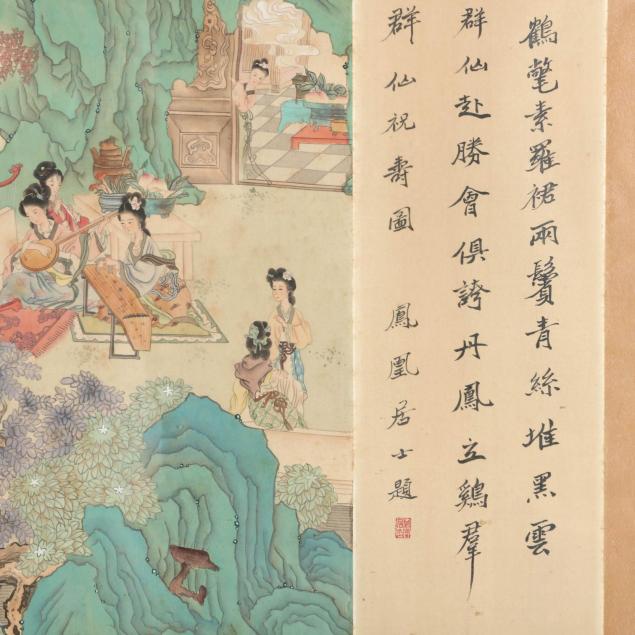 鶴氅素羅裙兩鬢青絲堆黑雲
群仙赴勝會俱誇丹鳳立鷄羣
群仙祝壽圖 鳳凰居士題